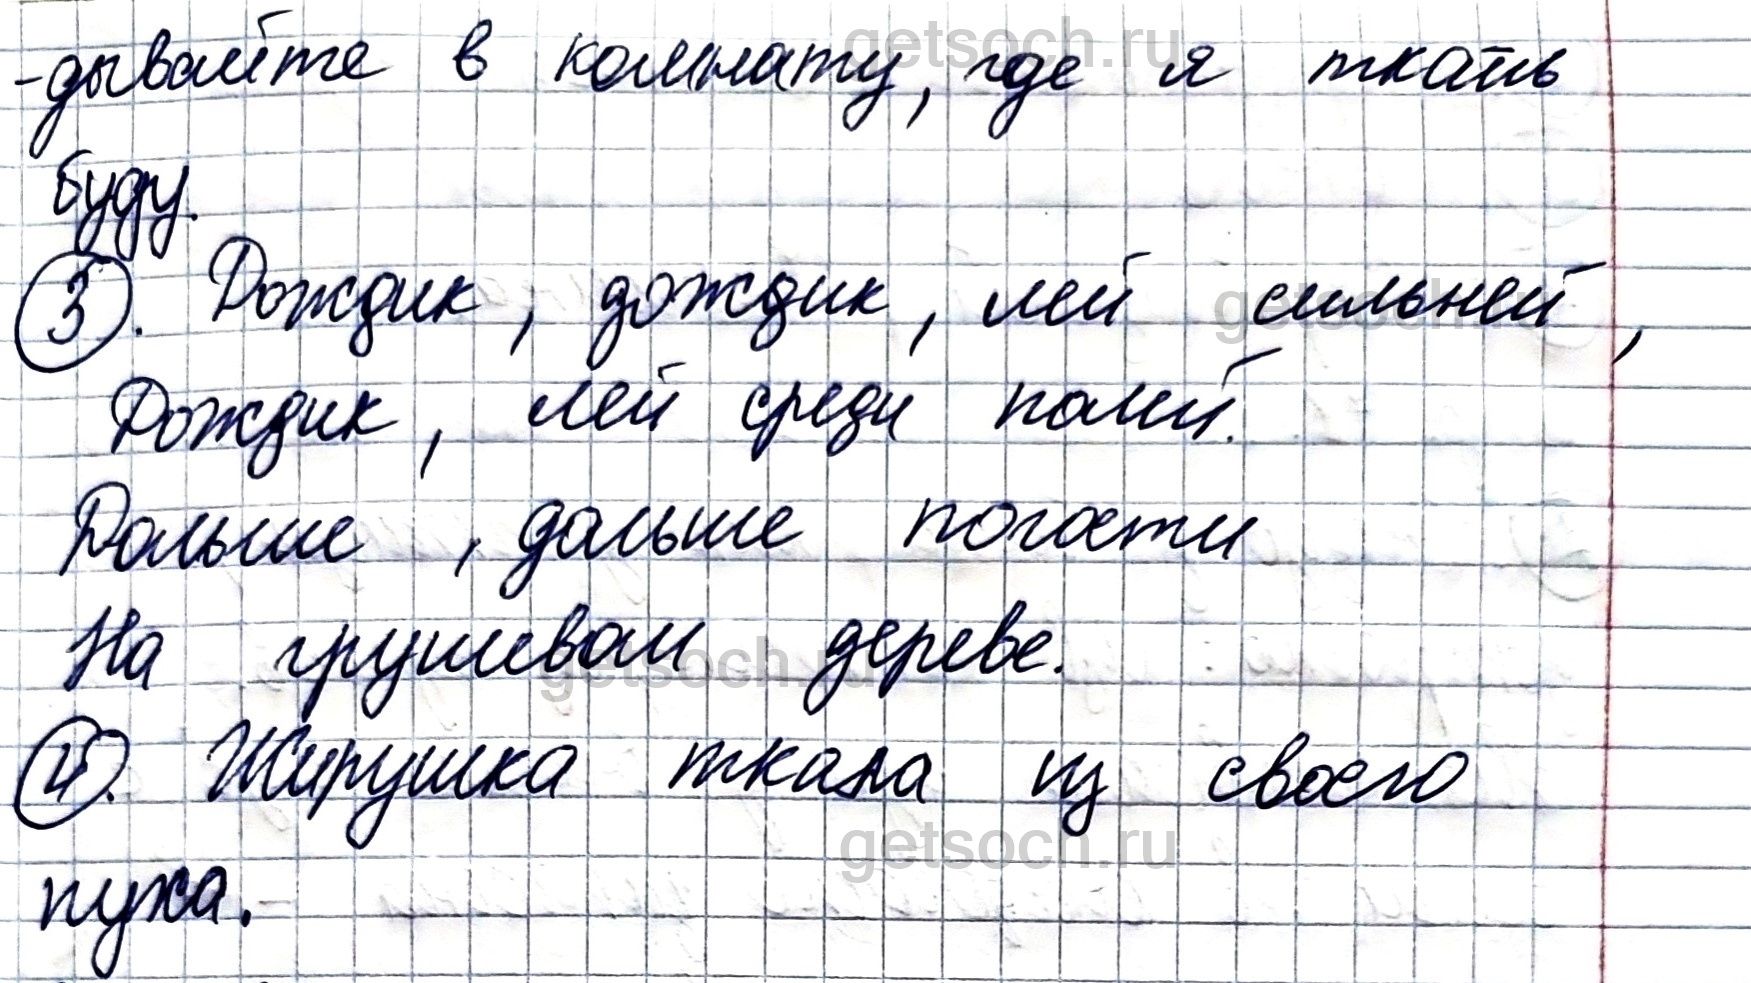 -дывайте в комнату, где я ткать
буду.
3. Дождик, дождик, лей сильней,
Дождик, лей среди полей.
Дальше, дальше погости
На грушевом дереве.
4. Жирушка ткала из своего
пуха.
getsoch.ru
getsoch.ru
getsoch.ru
getsoch.ru